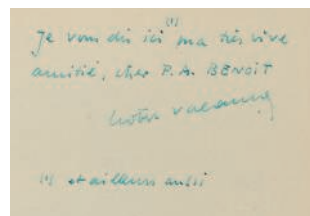 Je vous dis ici (1) ma très vive
amitié, cher P. A. BENOIT
votre
(1) et ailleurs aussi